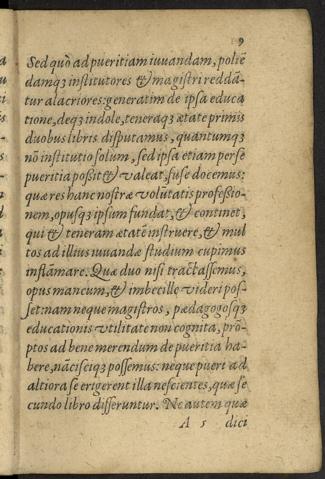 9
Sed quò ad pueritiam iuuandam, poliē
damqȝ institutores & magistri reddā-
tur alacriores: generatim de ipsa educa
tione, deqȝ indole, teneraqȝ ætate primis
duobus libris disputamus, quantumqȝ
nō institutio solum, sed ipsa etiam per se
pueritia possit & valeat, fuse docemus:
quæ res hanc nostræ volūtatis professio-
nem, opusqȝ ipsum fundat, & continet,
qui & teneram ætatē instruere, & mul
tos ad illius iuuandæ studium cupimus
inflāmare. Quæ duo nisi tractassemus,
opus mancum, & imbecille videri pos-
set: nam neque magistros, pædagogosqȝ
educationis vtilitate non cognita, prō-
ptos ad bene merendum de pueritia ha-
bere, nāciscíqȝ possemus: neque pueri ad
altiora se erigerent illa nescientes, quæ se
cundo libro disseruntur. Ne autem quæ
A 5 dici